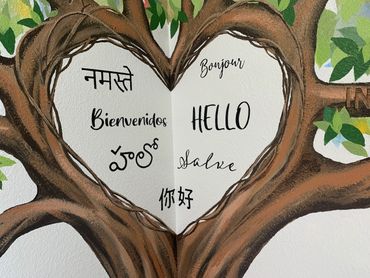 नमस्ते
Bonjour
Bienvenidos
HELLO
హలో
Salve
你好